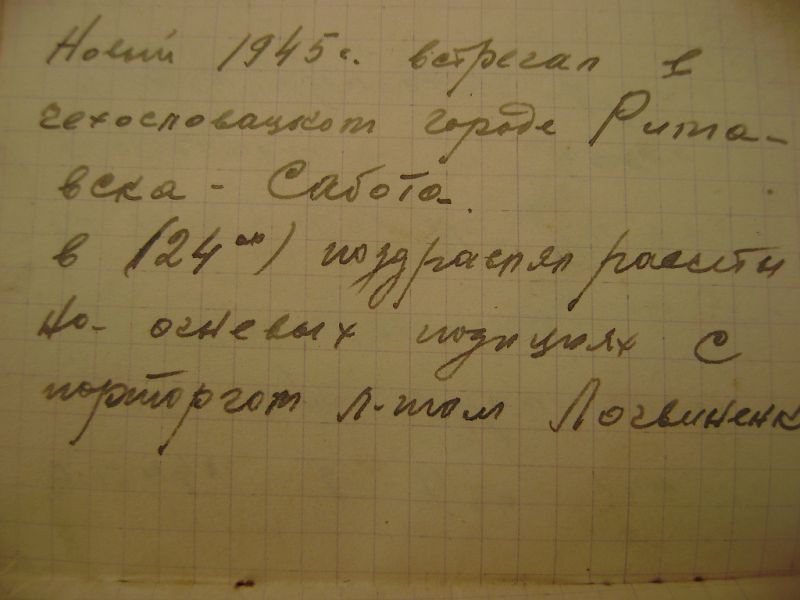 Новый 1945г. встречал в
чехословацком городе Рима-
вска - Сабота.
в (24 °°) поздравлял расчеты
на огневых позициях с
парторгом л-том Логвиненк